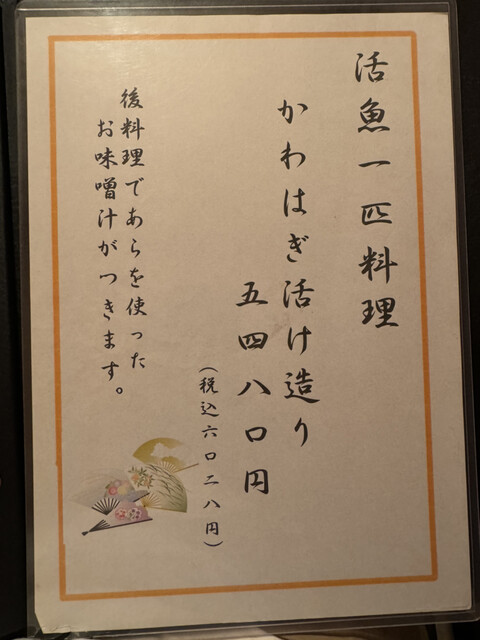 活魚一匹料理
かわはぎ活け造り
五四八〇円
(税込六〇二八円)
後料理であらを使った
お味噌汁がつきます。